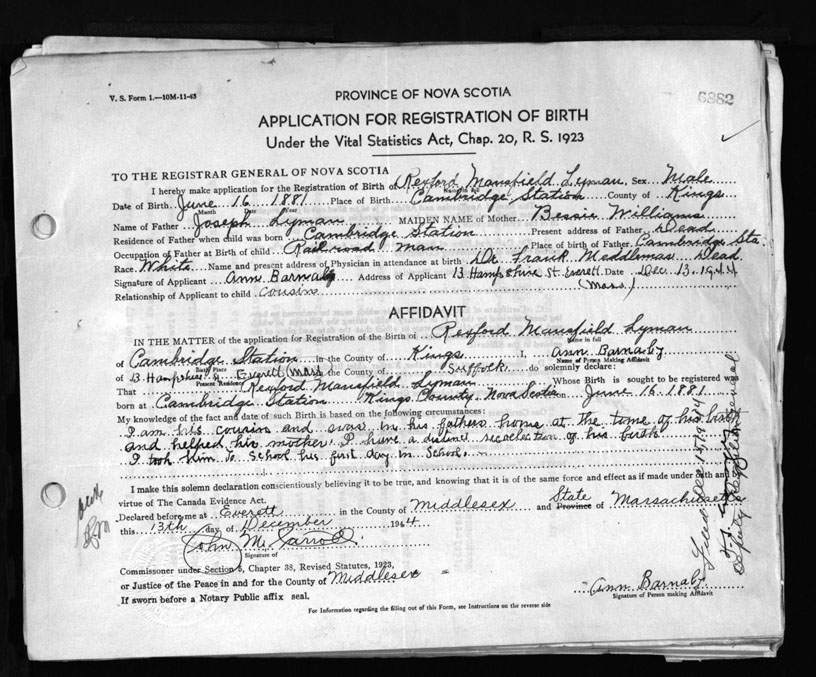 V. S. Form 1.—10M-11-43
PROVINCE OF NOVA SCOTIA
6882
APPLICATION FOR REGISTRATION OF BIRTH
Under the Vital Statistics Act, Chap. 20, R. S. 1923
TO THE REGISTRAR GENERAL OF NOVA SCOTIA
I hereby make application for the Registration of Birth of Rexford Mansfield Lyman, Sex Male
Name in full
Date of Birth June 16 1881 Place of Birth Cambridge Station County of Kings
Month Date Year
Name of Father Joseph Lyman MAIDEN NAME of Mother Bessie Williams
Residence of Father when child was born Cambridge Station Present address of Father Dead
Occupation of Father at Birth of child Railroad Man Place of birth of Father Cambridge Sta.
Race White Name and present address of Physician in attendance at birth Dr. Frank Meddlemas Dead
Signature of Applicant Ann Barnaby Address of Applicant 13 Hampshire St. Everett Date Dec. 13. 1944
(Mass)
Relationship of Applicant to child cousin
AFFIDAVIT
IN THE MATTER of the application for Registration of the Birth of Rexford Mansfield Lyman
Name in full
of Cambridge Station in the County of Kings I, Ann Barnaby
Birth Place Name of Person Making Affidavit
of 13 Hampshire St Everett (Mass) the County of Suffock do solemnly declare:
Present Residence
That Rexford Mansfield Lyman Whose Birth is sought to be registered was
born at Cambridge Station Kings County, Nova Scotia June 16. 1881
My knowledge of the fact and date of such Birth is based on the following circumstances:
I am his cousin and was in his fathers home at the time of his birth
and helped his mother. I have a distinct recolection of his birth
I took him to School his first day in School.
I make this solemn declaration conscientiously believing it to be true, and knowing that it is of the same force and effect as if made under oath and
virtue of The Canada Evidence Act.
Declared before me at Everett in the County of Middlesex and State Province of Massachusetts
this 13th day of December 1944
John M. Carroll
Signature of
Commissioner under Section 5, Chapter 38, Revised Statutes, 1923,
or Justice of the Peace in and for the County of Middlesex
If sworn before a Notary Public affix seal.
Ann Barnaby
Signature of Person making Affidavit
For Information regarding the filling out of this Form, see Instructions on the reverse side
Deputy Registrar General